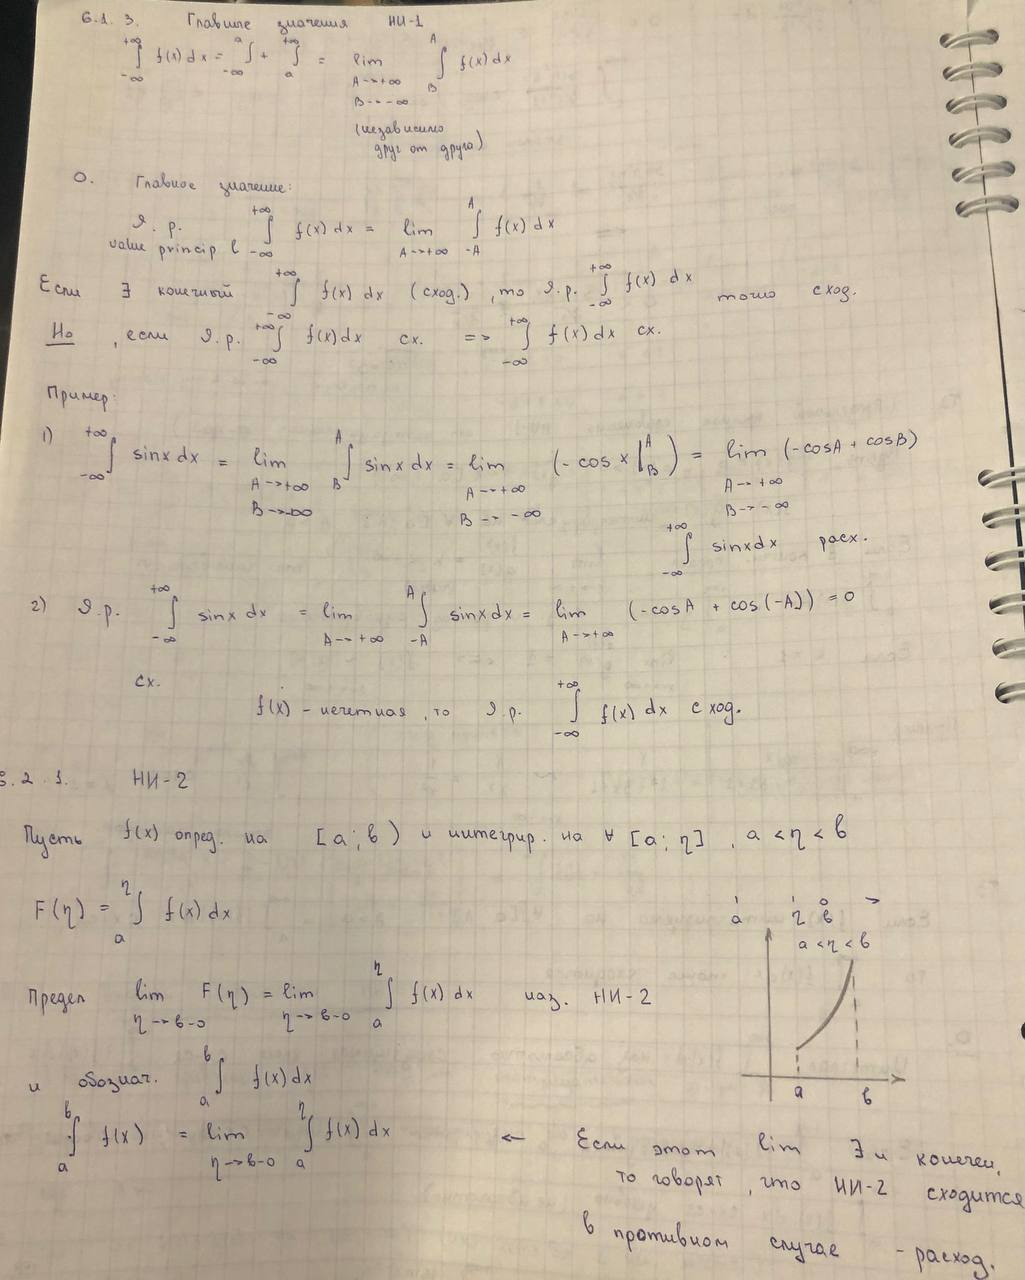 6.1.3. Главные значения НИ-1
+∞∫-∞ f(x)dx = a∫-∞ + +∞∫a = lim A→+∞ B→-∞ A∫B f(x)dx
(независимо
друг от друга)
О. Главное значение:
v.p. +∞∫-∞ f(x)dx = lim A→+∞ A∫-A f(x)dx
value princip l
Если ∃ конечный +∞∫-∞ f(x)dx (сход.), то v.p. +∞∫-∞ f(x)dx точно сход.
Но, если v.p. +∞∫-∞ f(x)dx сх. => +∞∫-∞ f(x)dx сх.
Пример:
1) +∞∫-∞ sinxdx = lim A→+∞ B→-∞ A∫B sinxdx = lim A→+∞ B→-∞ (-cosx|A B) = lim A→+∞ B→-∞ (-cosA + cosB)
+∞∫-∞ sinxdx расх.
2) v.p. +∞∫-∞ sinxdx = lim A→+∞ A∫-A sinxdx = lim A→+∞ (-cosA + cos(-A)) = 0
сх.
f(x) - нечетная, то v.p. +∞∫-∞ f(x)dx сход.
6.2.1. НИ-2
Пусть f(x) опред. на [a;b) и интегрир. на ∀ [a;η], a<η<b
F(η) = η∫a f(x)dx
a η b
a<η<b
Предел lim η→b-0 F(η) = lim η→b-0 η∫a f(x)dx наз. НИ-2
и обознач. b∫a f(x)dx
a b
b∫a f(x) = lim η→b-0 η∫a f(x)dx ← Если этот lim ∃ и конечен,
то говорят, что НИ-2 сходится
в противном случае - расход.